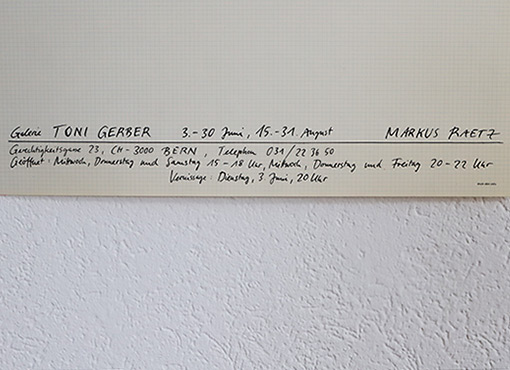 Galerie TONI GERBER 3.-30 Juni, 15.-31. August MARKUS RAETZ
Gerechtigkeitsgasse 23, CH-3000 BERN, Telephon 031/22 36 50
Geöffnet: Mittwoch, Donnerstag und Samstag 15-18 Uhr, Mittwoch, Donnerstag und Freitag 20-22 Uhr
Vernissage: Dienstag, 3 Juni, 20 Uhr